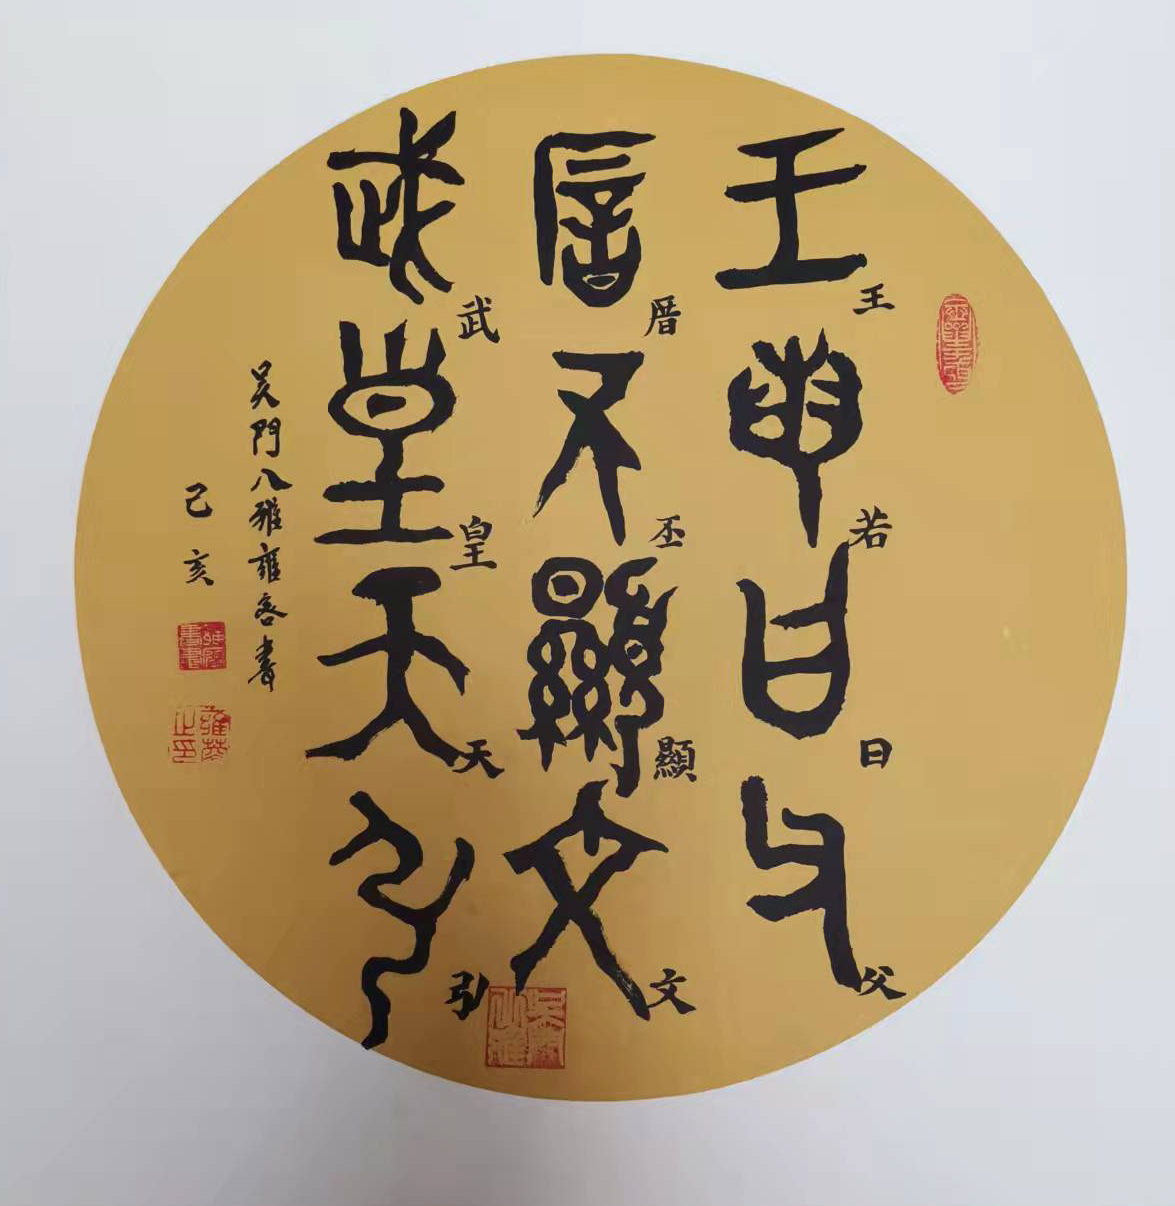 王若曰父
王若曰父
厝不顯文
厝丕顯文
武皇天引
武皇天引
吴門八雅雍容書
己亥
吴門八雅